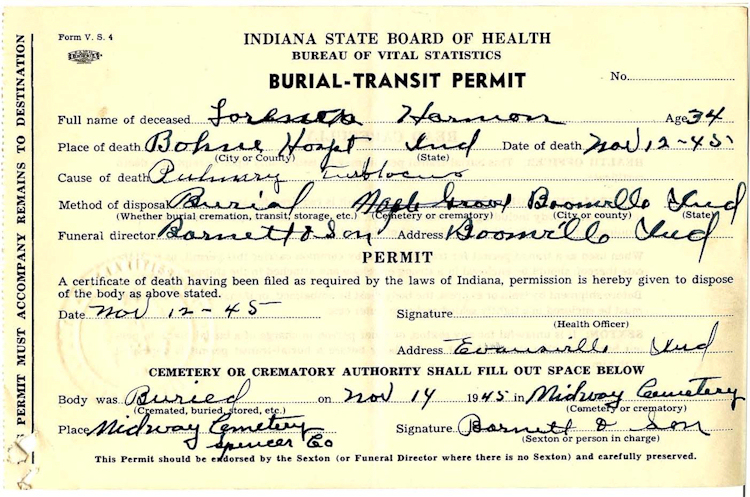 Form V. S. 4
INDIANA STATE BOARD OF HEALTH
BUREAU OF VITAL STATISTICS
BURIAL-TRANSIT PERMIT
No.
Full name of deceased Harmon Age 34
Place of death Bohne Hospt Ind Date of death Nov 12-45
(City or County) (State)
Cause of death
Method of disposal Burial Maple Grove Boonville Ind
(Whether burial cremation, transit, storage, etc.) (Cemetery or crematory) (City or county) (State)
Funeral director Barnett & Son Address Boonville Ind
PERMIT
A certificate of death having been filed as required by the laws of Indiana, permission is hereby given to dispose
of the body as above stated.
Date Nov 12-45 Signature
(Health Officer)
Address Evansville Ind
CEMETERY OR CREMATORY AUTHORITY SHALL FILL OUT SPACE BELOW
Body was Buried on Nov 14 1945 in Midway Cemetery
(Cremated, buried, stored, etc.) (Cemetery or crematory)
Place Midway Cemetery Signature Barnett & Son
Spencer Co
(Sexton or person in charge)
This Permit should be endorsed by the Sexton (or Funeral Director where there is no Sexton) and carefully preserved.
PERMIT MUST ACCOMPANY REMAINS TO DESTINATION